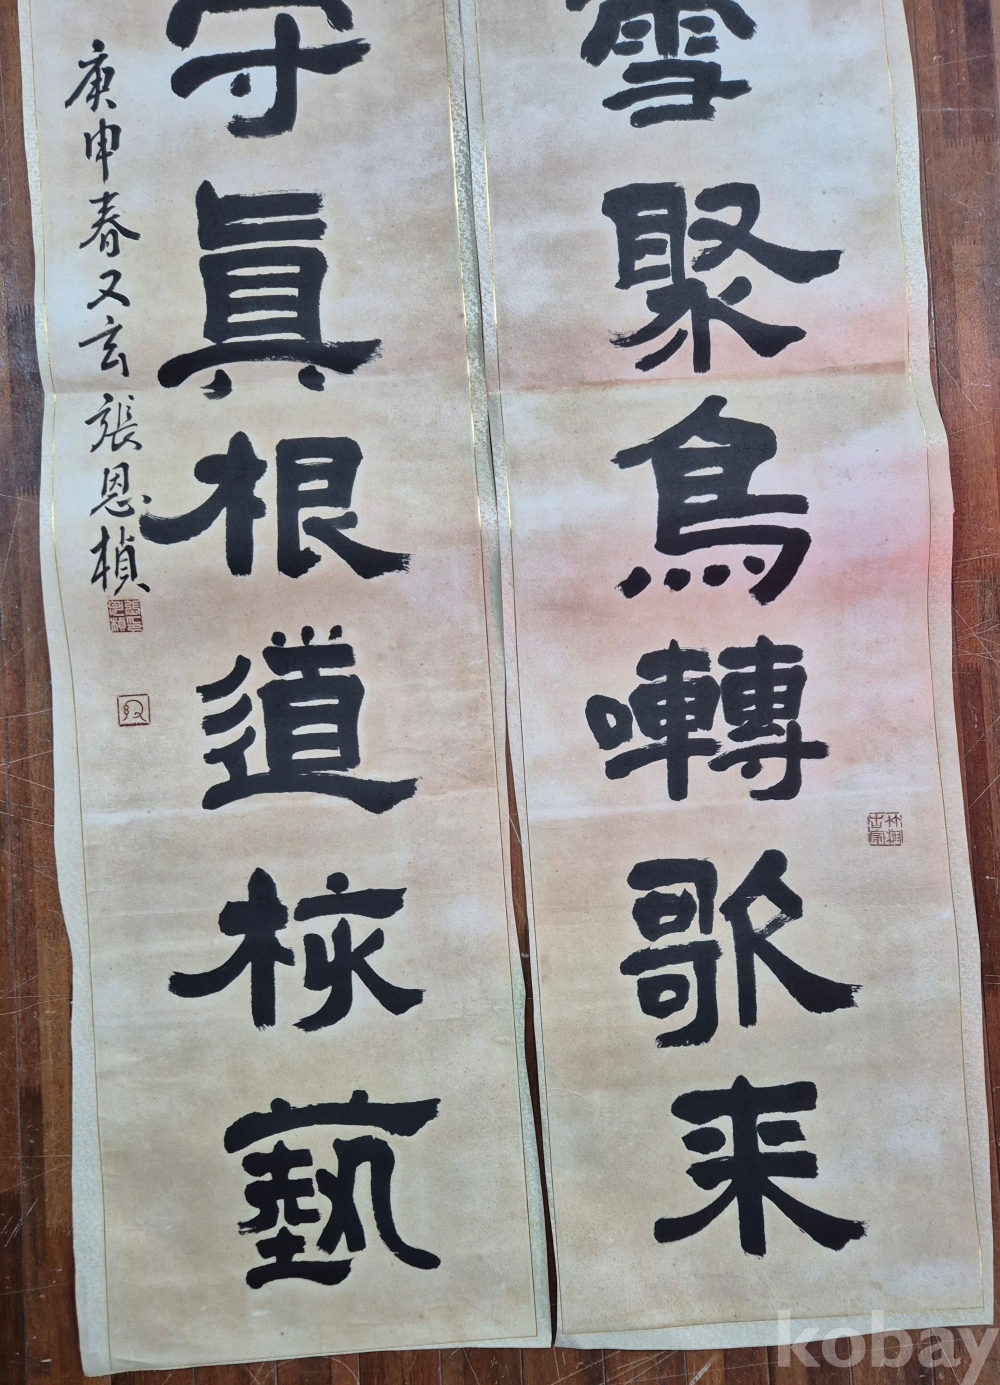 雪聚鳥囀歌来
守真根道核藝
庚申春又玄張恩楨
kobay